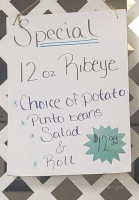 Special
12 oz Ribeye
* Choice of potato
* Pinto beans
* Salad
&
* Roll
$12.99